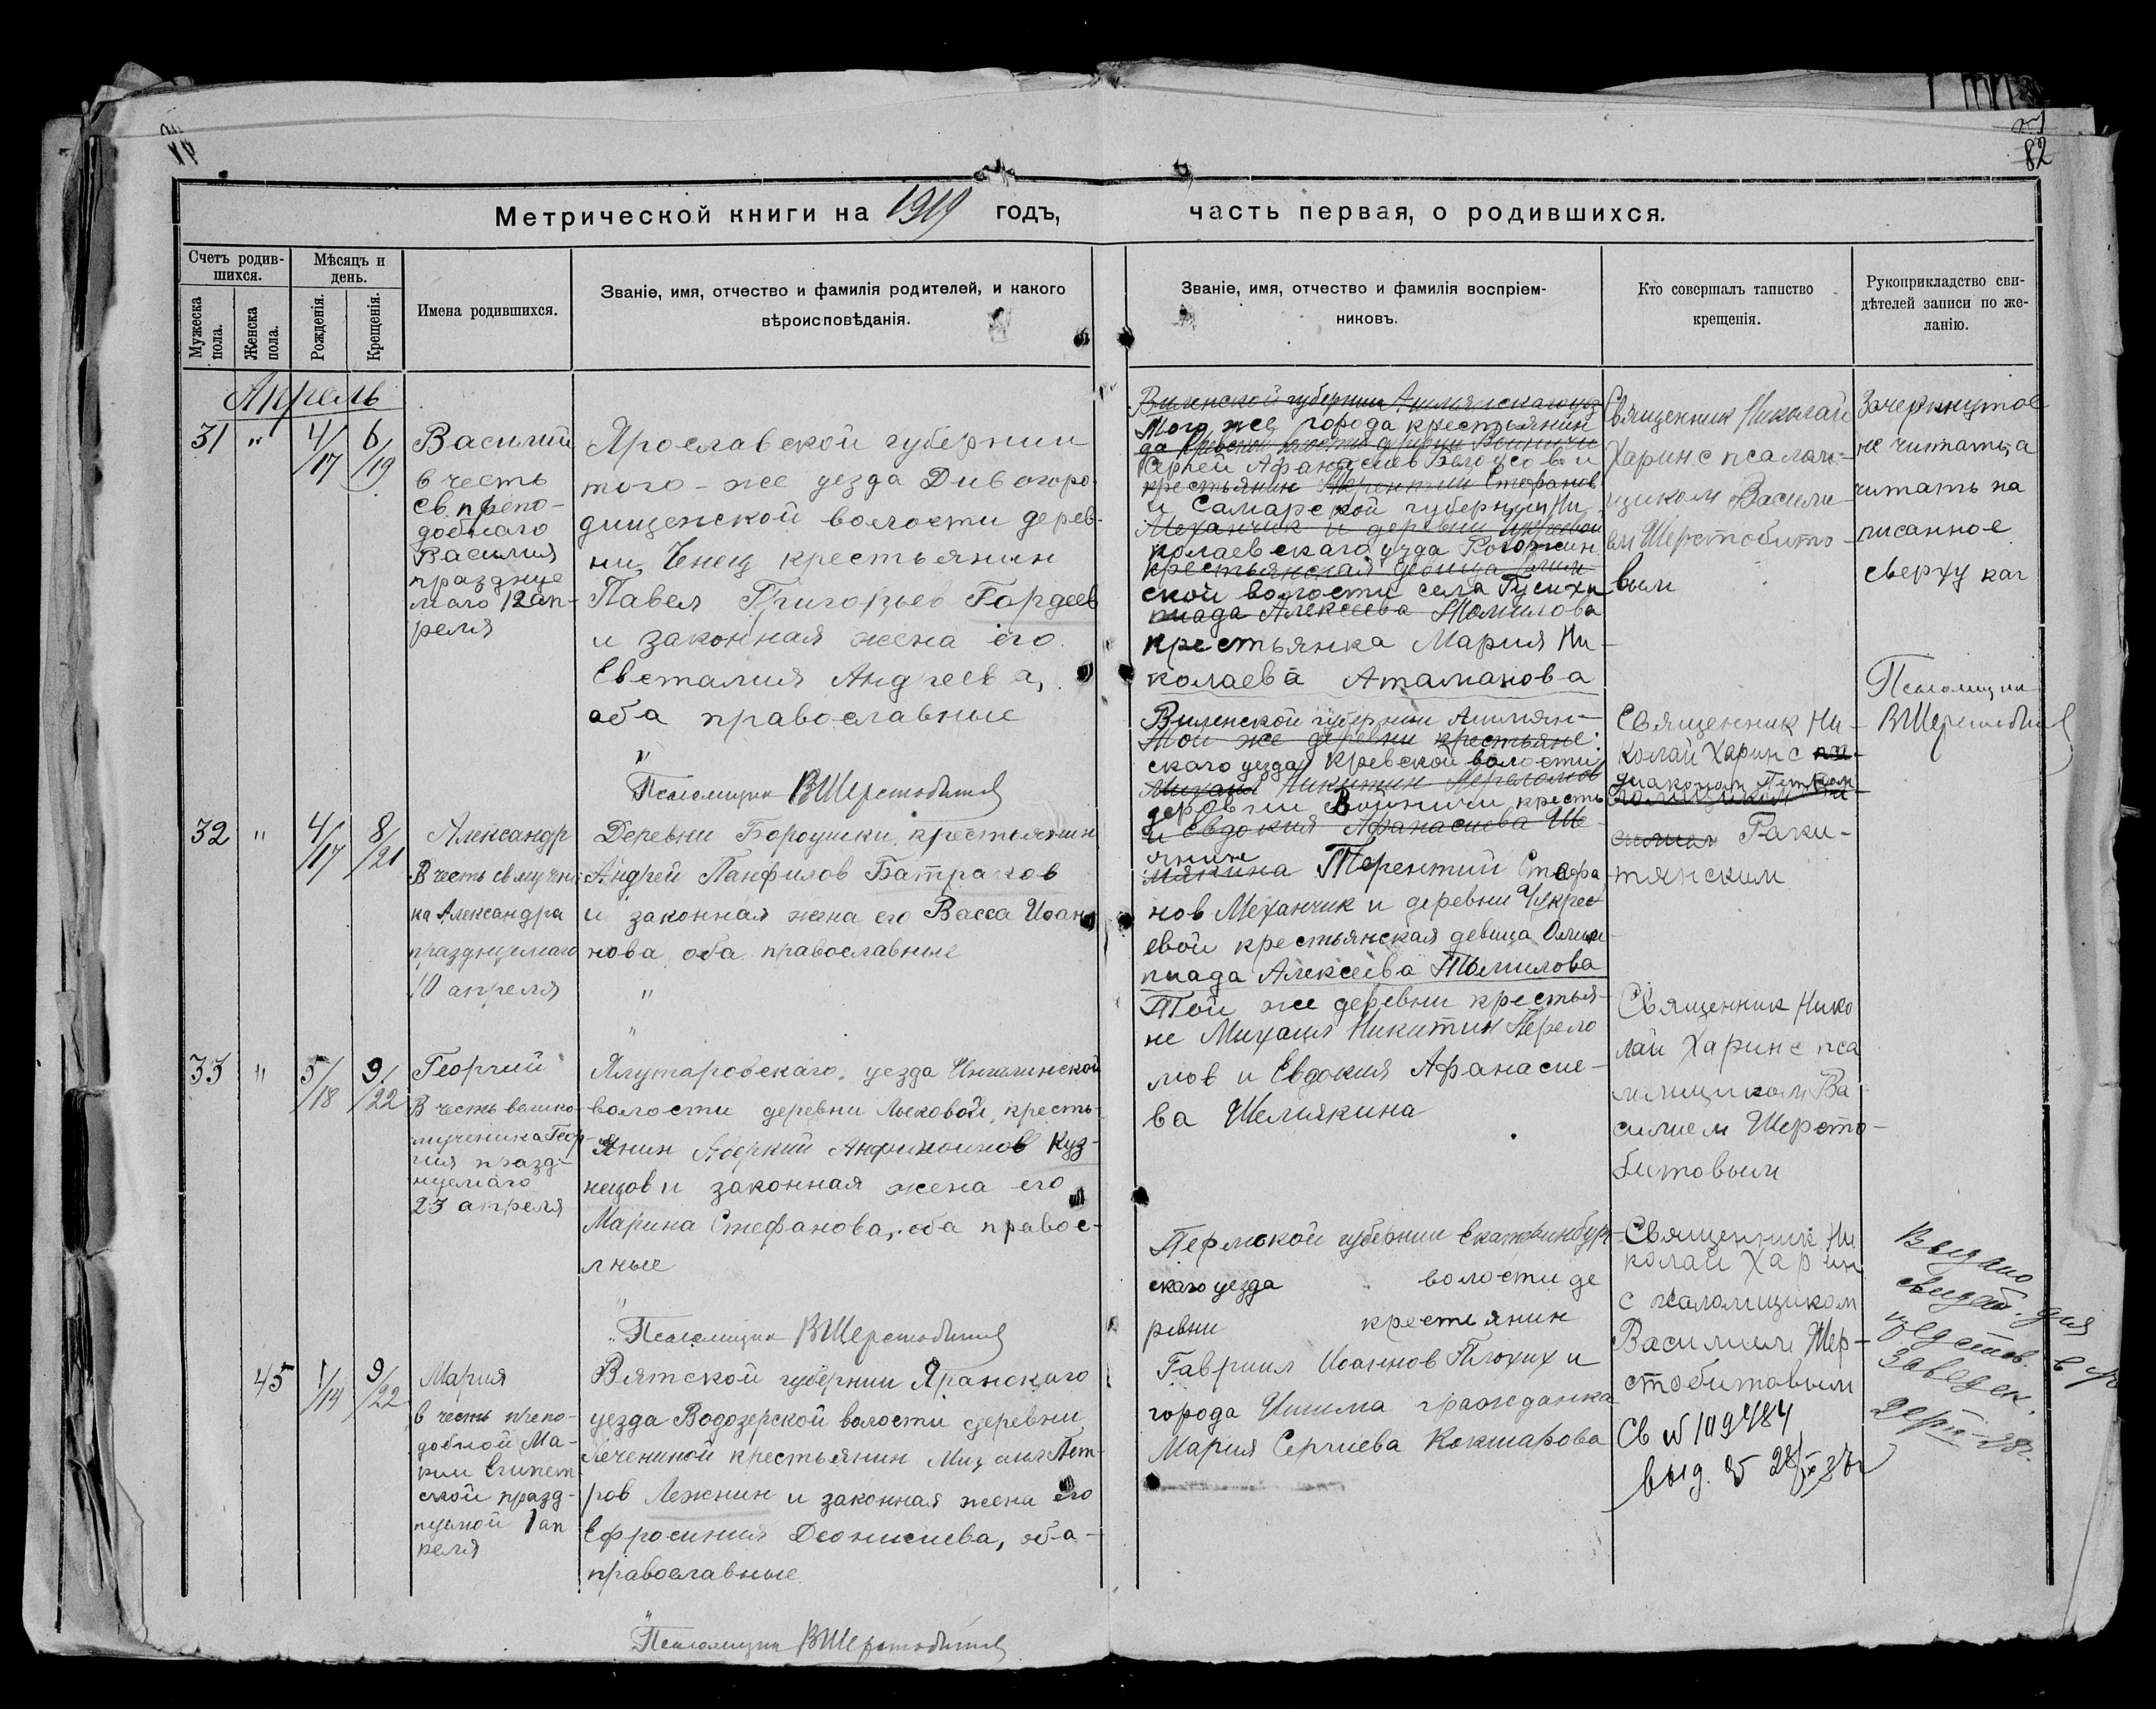 82
Метрической книги на 1919 годъ,
часть первая, о родившихся.
Счетъ родив-
шихся.
Мужеска
пола.
Женска
пола.
Мѣсяцъ и
день.
Рожденія.
Крещенія.
Имена родившихся.
Званіе, имя, отчество и фамилія родителей, и какого
вѣроисповѣданія.
Званіе, имя, отчество и фамилія воспріем-
никовъ.
Кто совершалъ таинство
крещенія.
Рукоприкладство сви-
дѣтелей записи по же-
ланію.
Апрель
31 " 4/17 6/19
Василий
в честь
св. препо-
добнаго
Василия
празднуе
маго 12 ап-
реля
Ярославской губернии
того-же уезда Дивогоро-
дищенской волости дерев-
ни Ченец крестьянин
Павел Григорьев Гордеев
и законная жена его
Евсталия Андреева,
оба православные
"
Псаломщик ВШерстобитов
Виленской губернии Ашмянскаго уез
Того же города крестьянин
да Кревской волости деревни Войничи
Сергей Афанасиев Белоусов и
крестьянин Терентий Стефанов
и Самарской губернии Ни
Механчик и деревни Чукреевой
колаевскаго уезда
крестьянская девица Олим
ской волости села Гусиха
пиада Алексеева Томилова
крестьянка Мария Ни-
колаева Атаманова
Священник Николай
Харин с псалом-
щиком Васили-
ем Шерстобито-
вым
Зачеркнутое
не читать, а
читать на
писанное
сверху
Псаломщик
ВШерстобитов
32 " 4/17 8/21
Александр
В честь св мучени
ка Александра
празднуемаго
10 апреля
Деревни Бороушки крестьянин
Андрей Панфилов Батраков
и законная жена его Васса Иоан
нова, оба православные
"
"
Виленской губернии Ашмян-
Той же деревни крестьяне:
скаго уезда Кревской волости
Михаил Никитин Переломов
деревни Войничи кресть
и Евдокия Афанасиева Ше-
янин
мякина Терентий Стефа
нов Механчик и деревни Чукре
евой крестьянская девица Олим
пиада Алексеева Томилова
Священник Ни-
колай Харин с
диаконом Петром
Раки-
тянским
33 " 5/18 9/22
Георгий
В честь велико-
мученика Геор-
гия празд-
нуемаго
23 апреля
Ялуторовскаго уезда Ингалинской
волости деревни Лыковой, кресть-
янин Аверкий Куз-
нецов и законная жена его
Марина Стефанова, оба правос-
лные
"
Псаломщик ВШерстобитов
Той же деревни крестья-
не Михаил Никитин Перело
мов и Евдокия Афанасие-
ва Шемякина
Священник Нико
лай Харин с пса
ломщиком Ва
силием Шерсто-
битовым
45 1/14 9/22
Мария
в честь препо-
добной Ма-
рии Египет
ской празд-
нуемой 1 ап
реля
Вятской губернии Яранскаго
уезда Водозерской волости деревни
Печениной крестьянин Михаил Пет-
ров Лежнин и законная жена его
Ефросиния Деонисиева, оба-
православные
"
Псаломщик ВШерстобитов
Пермской губернии Екатеринбург-
скаго уезда волости де
ревни крестьянин
Гавриил Иоаннов Плохих и
города Ишима гражданка
Мария Сергиева Кокшарова
Священник Ни
колай Харин
с псаломщиком
Василием Шер-
стобитовым
Св № 109484
выд.
Выдано
свидет. для